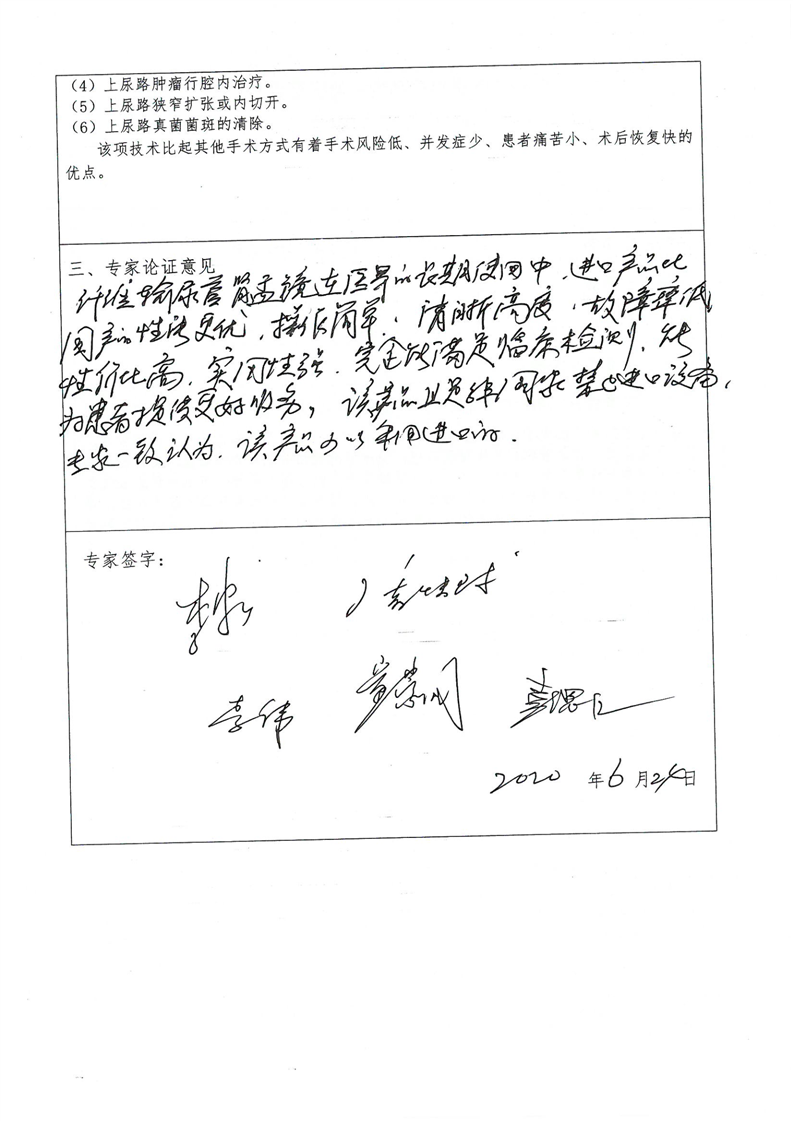 （4）上尿路肿瘤行腔内治疗。
（5）上尿路狭窄扩张或内切开。
（6）上尿路真菌菌斑的清除。
该项技术比起其他手术方式有着手术风险低、并发症少、患者痛苦小、术后恢复快的
优点。
三、专家论证意见
纤维输尿管肾盂镜在医学的长期使用中，进口产品比
国产的性能更优，操作简单，清晰高度，故障率低
性价比高，实用性强，完全能满足临床检测，能
为患者提供更好服务，该产品且国家禁止进口设备，
专家一致认为，该产品可以采用进口的．
专家签字：
李伟
2020 年 6 月 24 日